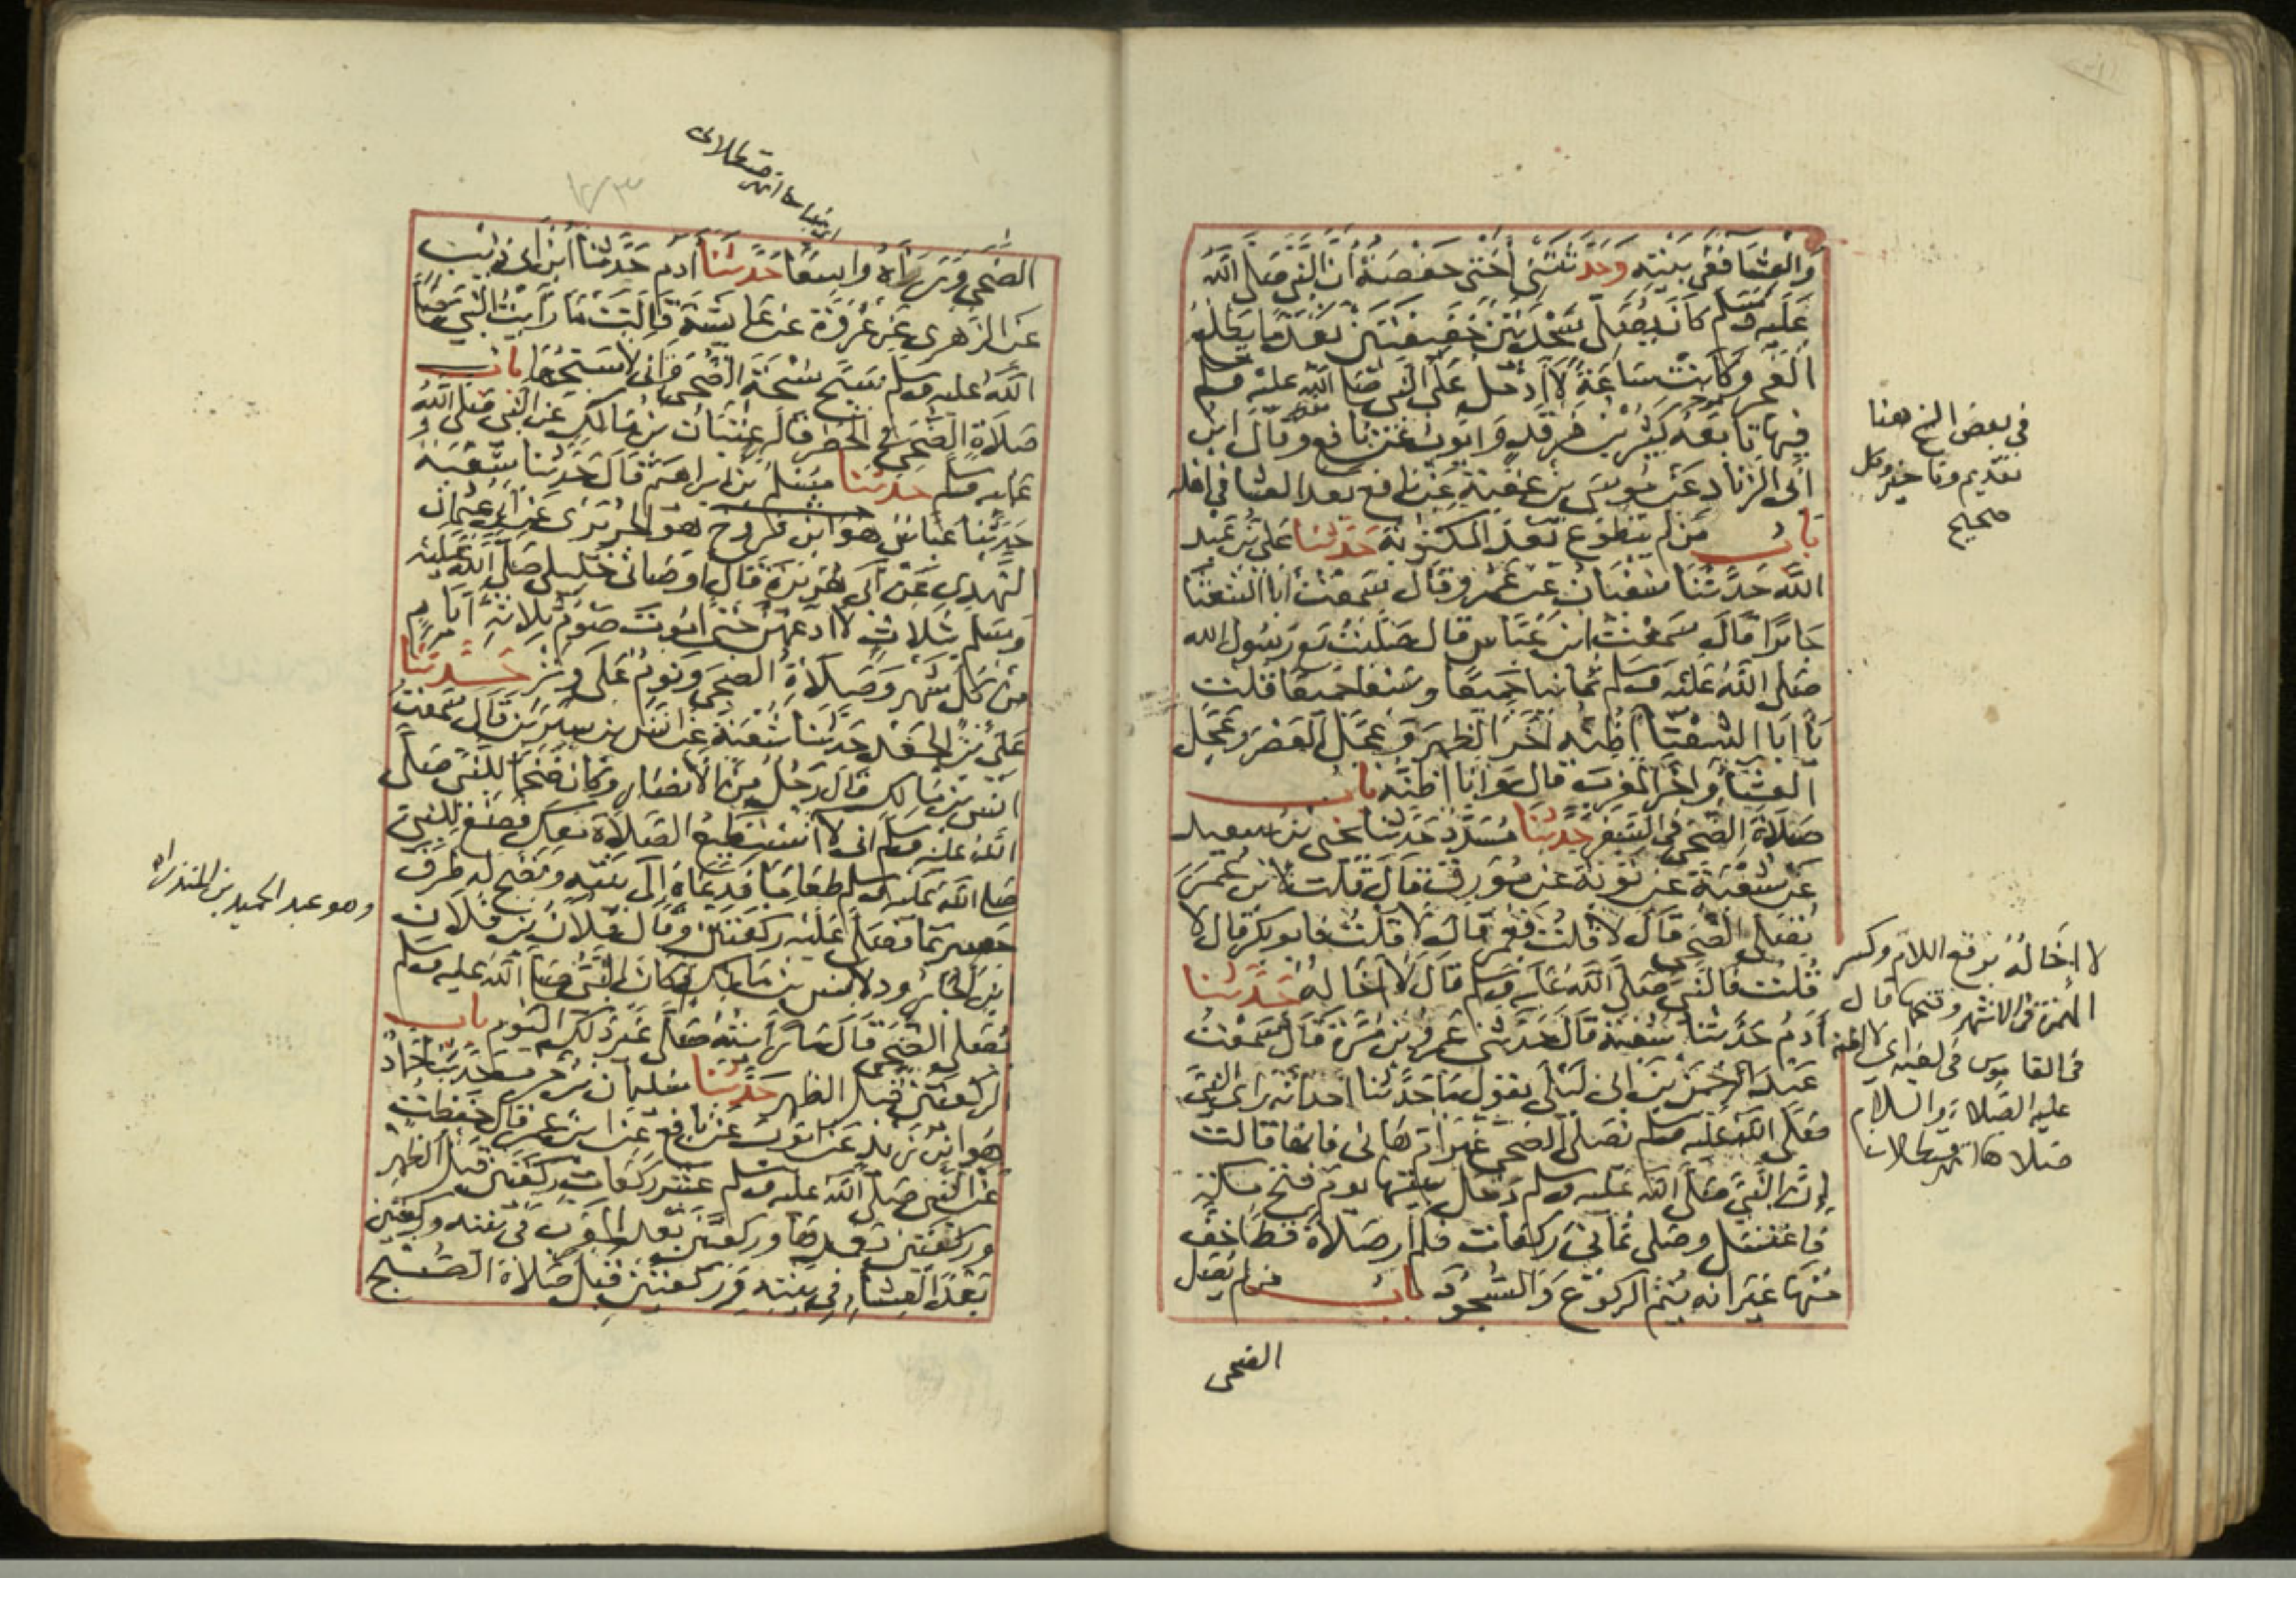 والعشا ففي بيته وحدثتني أختي حفصة أن النبي صلى الله
عليه وسلم كان يصلي سجدتين خفيفتين بعد ما يطلع
الفجر وكانت ساعة لا أدخل على النبي صلى الله عليه وسلم
فيها تابعه كثير بن فرقد وأيوب عن نافع وقال ابن
أبي الزناد عن موسى بن عقبة عن نافع بعد العشا في أهله
باب من لم يتطوع بعد المكتوبة حدثنا علي بن عبد
الله حدثنا سفيان عن عمرو قال سمعت أبا الشعثا
جابرا قال سمعت ابن عباس قال صليت مع رسول الله
صلى الله عليه وسلم ثمانيا جميعا وسبعا جميعا قلت
يا أبا الشعثا أظنه أخر الظهر وعجل العصر وعجل
العشا وأخر المغرب قال وأنا أظنه باب
صلاة الضحى في السفر حدثنا مسدد حدثنا يحيى بن سعيد
عن شعبة عن توبة عن مورق قال قلت لابن عمر
يصلى الضحى قال لا قلت فعمر قال لا قلت فأبو بكر قال لا
قلت فالنبي صلى الله عليه وسلم قال لا أخاله حدثنا
آدم حدثنا شعبة قال حدثني عمرو بن مرة قال سمعت
عبد الرحمن بن أبي ليلى يقول ما حدثنا أحد أنه رأى النبي
صلى الله عليه وسلم يصلي الضحى غير أم هانئ فإنها قالت
إن النبي صلى الله عليه وسلم دخل بيتها يوم فتح مكة
فاغتسل وصلى ثماني ركعات فلم أر صلاة قط أخف
منها غير أنه يتم الركوع والسجود باب من لم يصل
الضحى
في بعض النسخ هنا
تقديم وتأخير وكل
صحيح
لا إخاله برفع اللام وكسر
الهمزة في الأشهر وفتحها قال
في القاموس في لغية أي لا أظنه
عليه الصلاة والسلام
صلاها قسطلاني
الضحى ورآه واسعا حدثنا آدم حدثنا ابن أبي ذئب
عن الزهري عن عروة عن عائشة قالت ما رأيت النبي صلى
الله عليه وسلم سبح سبحة الضحى وإني لأسبحها باب
صلاة الضحى في الحضر قاله عتبان بن مالك عن النبي صلى الله
عليه وسلم حدثنا مسلم بن إبراهيم قال حدثنا شعبة
حدثنا عباس هو ابن فروخ هو الجريري عن أبي عثمان
النهدي عن أبي هريرة قال أوصاني خليلي صلى الله عليه
وسلم بثلاث لا أدعهن حتى أموت صوم ثلاثة أيام
من كل شهر وصلاة الضحى ونوم على وتر حدثنا
علي بن الجعد حدثنا شعبة عن أنس بن سيرين قال سمعت
أنس بن مالك قال رجل من الأنصار وكان ضخما للنبي صلى
الله عليه وسلم إني لا أستطيع الصلاة معك فصنع للنبي
صلى الله عليه وسلم طعاما فدعاه إلى بيته ونضح له طرف
حصير بما فصلى عليه ركعتين وقال فلان بن فلان
بن الجارود لأنس بن مالك أكان النبي صلى الله عليه وسلم
يصلي الضحى قال ما رأيته صلى غير ذلك اليوم باب
الركعتين قبل الظهر حدثنا سليمان بن حرب حدثنا حماد
هو ابن زيد عن أيوب عن نافع عن ابن عمر قال حفظت
عن النبي صلى الله عليه وسلم عشر ركعات ركعتين قبل الظهر
وركعتين بعدها وركعتين بعد المغرب في بيته وركعتين
بعد العشاء في بيته وركعتين قبل صلاة الصبح
وهو عبد الحميد بن المنذر